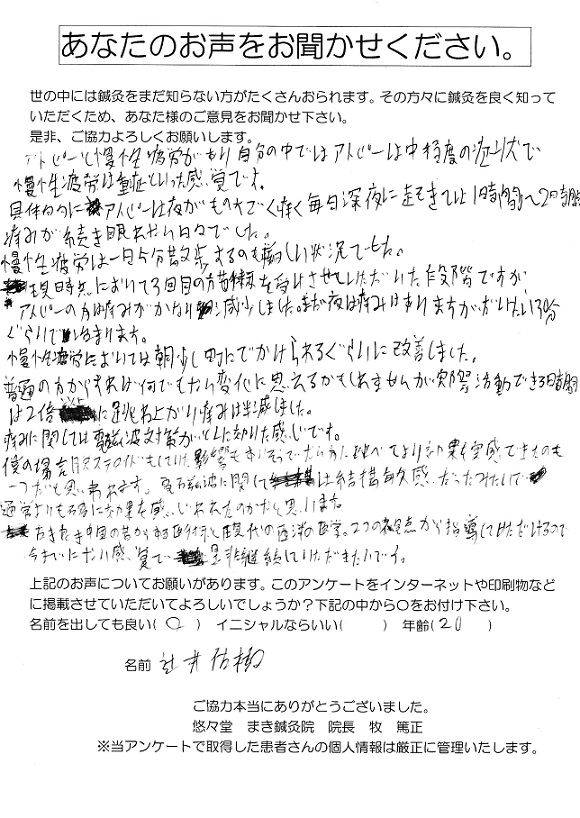 あなたのお声をお聞かせください。
世の中には鍼灸をまだ知らない方がたくさんおられます。その方々に鍼灸を良く知って
いただくため、あなた様のご意見をお聞かせ下さい。
是非、ご協力よろしくお願いします。
アトピーと慢性疲労があり自分の中ではアトピーは中程度の症状で
慢性疲労は重症といった感覚です。
具体的にアトピーは夜がものすごく痒く毎日深夜に起きては1時間〜2時間
痛みが続き眠れない日々でした。
慢性疲労は一日5分散歩するのも難しい状況でした。
現時点において3回目の施術を受けさせていただいた段階ですが
アトピーの方は痛みがかなり減少しました。まだ夜は痛みはありますがだいたい30分
ぐらいで治まります。
慢性疲労においては朝少し町にでかけられるぐらいに改善しました。
普通の方からすれば何でもない変化に思えるかもしれませんが実際活動できる時間
は2倍に跳ね上がり痛みは半減しました。
痛みに関しては電磁波対策がとくに効いた感じです。
僕の場合脱ステロイドもしていた影響もありそうでない方に比べてより効果を実感できたのも
一つだと思われます。電磁波に関しては結構敏感だったみたいで
通常よりも多くに効果を感じれたのかなと思います。
中国の昔からある東洋医学と現代の西洋の医学。2つの視点から指導していただけるので
今までにない感覚で是非継続していただきたいです。
上記のお声についてお願いがあります。このアンケートをインターネットや印刷物など
に掲載させていただいてよろしいでしょうか？下記の中から〇をお付け下さい。
名前を出しても良い(〇) イニシャルならいい( ) 年齢(20)
名前 辻井佑樹
ご協力本当にありがとうございました。
悠々堂 まき鍼灸院 院長 牧 篤正
※当アンケートで取得した患者さんの個人情報は厳正に管理いたします。